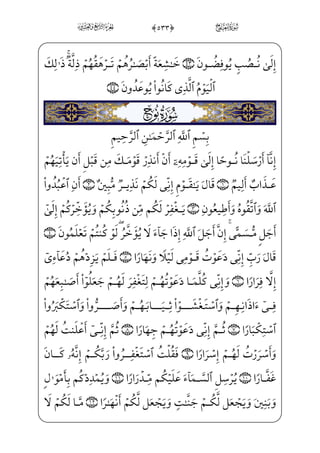 سُورَةُ نُوحٍ ﴿٥٣٣﴾ الجُزْءُ التَّاسِعُ وَالعِشْرُونَ
إِلَىٰ نُصُبٍ يُوفِضُونَ ٤٣ خَٰشِعَةً أَبْصَٰرُهُمْ تَرْهَقُهُمْ ذِلَّةٌ ذَٰلِكَ
ٱلْيَوْمُ ٱلَّذِي كَانُوا۟ يُوعَدُونَ ٤٤
سُورَةُ نُوحٍ
بِسْمِ ٱللَّهِ ٱلرَّحْمَٰنِ ٱلرَّحِيمِ
إِنَّآ أَرْسَلْنَا نُوحًا إِلَىٰ قَوْمِهِۦٓ أَنْ أَنذِرْ قَوْمَكَ مِن قَبْلِ أَن يَأْتِيَهُمْ
عَذَابٌ أَلِيمٌ ١ قَالَ يَٰقَوْمِ إِنِّي لَكُمْ نَذِيرٌ مُّبِينٌ ٢ أَنِ ٱعْبُدُوا۟
ٱللَّهَ وَٱتَّقُوهُ وَأَطِيعُونِ ٣ يَغْفِرْ لَكُم مِّن ذُنُوبِكُمْ وَيُؤَخِّرْكُمْ إِلَىٰٓ
أَجَلٍ مُّسَمًّى إِنَّ أَجَلَ ٱللَّهِ إِذَا جَآءَ لَا يُؤَخَّرُ لَوْ كُنتُمْ تَعْلَمُونَ ٤
قَالَ رَبِّ إِنِّي دَعَوْتُ قَوْمِي لَيْلًا وَنَهَارًا ٥ فَلَمْ يَزِدْهُمْ دُعَآءِيٓ
إِلَّا فِرَارًا ٦ وَإِنِّي كُلَّمَا دَعَوْتُهُمْ لِتَغْفِرَ لَهُمْ جَعَلُوٓا۟ أَصَٰبِعَهُمْ
فِيٓ ءَاذَانِهِمْ وَٱسْتَغْشَوْا۟ ثِيَابَهُمْ وَأَصَرُّوا۟ وَٱسْتَكْبَرُوا۟
ٱسْتِكْبَارًا ٧ ثُمَّ إِنِّي دَعَوْتُهُمْ جِهَارًا ٨ ثُمَّ إِنِّيٓ أَعْلَنتُ لَهُمْ
وَأَسْرَرْتُ لَهُمْ إِسْرَارًا ٩ فَقُلْتُ ٱسْتَغْفِرُوا۟ رَبَّكُمْ إِنَّهُۥ كَانَ
غَفَّارًا ١٠ يُرْسِلِ ٱلسَّمَآءَ عَلَيْكُم مِّدْرَارًا ١١ وَيُمْدِدْكُم بِأَمْوَٰلٍ
وَبَنِينَ وَيَجْعَل لَّكُمْ جَنَّٰتٍ وَيَجْعَل لَّكُمْ أَنْهَٰرًا ١٢ مَّا لَكُمْ لَا